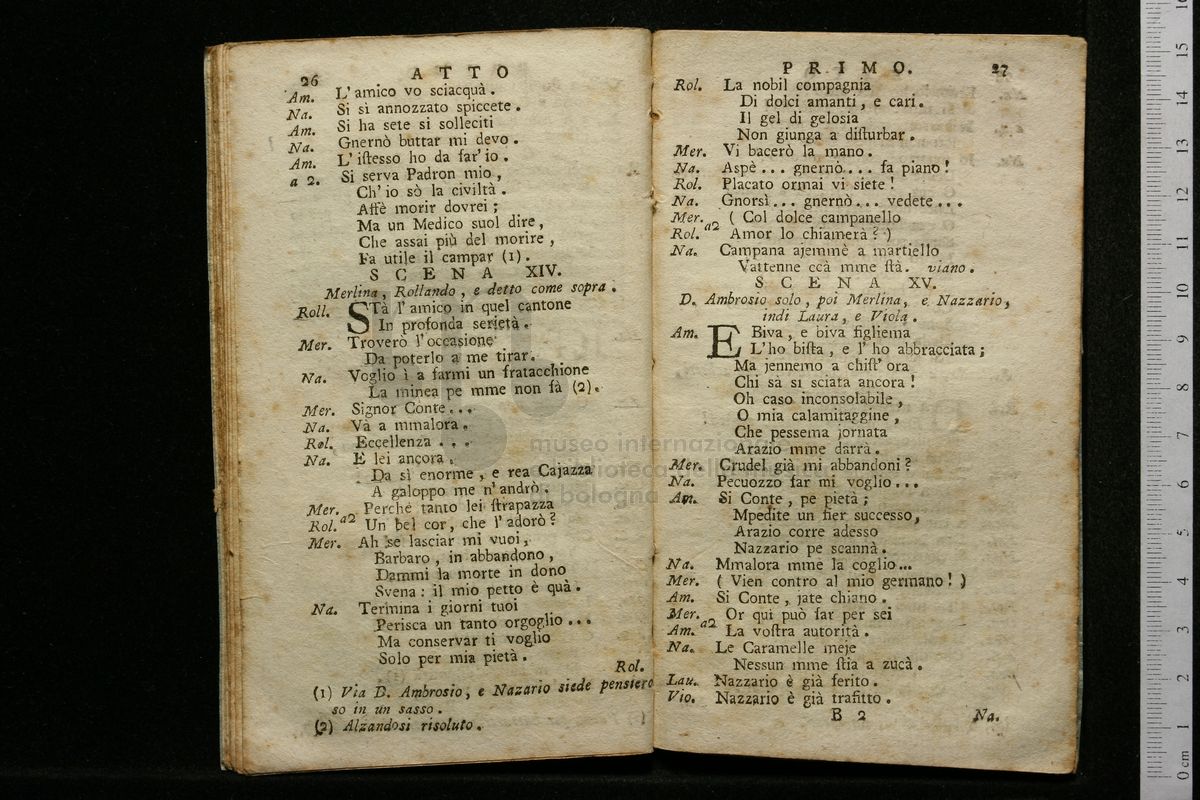 26 ATTO
Am. L' amico vo sciacquà .
Na. Si sì annozzato spiccete .
Am. Si ha sete si solleciti
Na. Gnernò buttar mi devo .
Am. L' iſtesso ho da far' io .
a 2. Si serva Padron mio ,
Ch' io sò la civiltà .
Affè morir dovrei ;
Ma un Medico suol dire ,
Che assai più del morire ,
Fa utile il campar (1) .
SCENA XIV.
Merlina , Rollando , e detto come sopra .
Roll. STà l' amico in quel cantone
In profonda serietà .
Mer. Troverò l' occasione
Da poterlo a me tirar .
Na. Voglio ì a farmi un fratacchione
La minea pe mme non fà (2) .
Mer. Signor Conte . . .
Na. Và a mmalora .
Rol. Eccellenza . . .
Na. E lei ancora .
Da sì enorme , e rea Cajazza
A galoppo me n' andrò .
Mer. Perchè tanto lei ſtrapazza
Rol. a2 Un bel cor , che l' adorò ?
Mer. Ah se lasciar mi vuoi ,
Barbaro , in abbandono ,
Dammi la morte in dono
Svena : il mio petto è quà .
Na. Termina i giorni tuoi
Perisca un tanto orgoglio . . .
Ma conservar ti voglio
Solo per mia pietà .
Rol.
(1) Via D. Ambrosio , e Nazario siede pensiero
so in un sasso .
(2) Alzandosi risoluto .
PRIMO. 27
Rol. La nobil compagnia
Di dolci amanti , e cari .
Il gel di gelosia
Non giunga a diſturbar .
Mer. Vi bacerò la mano .
Na. Aspè . . . gnernò . . . fa piano !
Rol. Placato ormai vi siete !
Na. Gnorsì . . . gnernò . . . vedete . . .
Mer. ( Col dolce campanello
Rol. a2 Amor lo chiamerà ? )
Na. Campana ajemmè a martiello
Vattenne ccà mme ſtà . viano .
SCENA XV.
D. Ambrosio solo , poi Merlina , e Nazzario ,
indi Laura , e Viola .
Am. E Biva , e biva figliema
L' ho biſta , e l' ho abbracciata ;
Ma jennemo a chiſt' ora
Chi sà si sciata ancora !
Oh caso inconsolabile ,
O mia calamitaggine ,
Che pessema jornata
Arazio mme darrà .
Mer. Crudel già mi abbandoni ?
Na. Pecuozzo far mi voglio . . .
Am. Si Conte , pe pietà ;
Mpedite un fier successo ,
Arazio corre adesso
Nazzario pe scannà .
Na. Mmalora mme la coglio . . .
Mer. ( Vien contro al mio germano ! )
Am. Si Conte , jate chiano .
Mer. Or qui può far per sei
Am. a2 La voſtra autorità .
Na. Le Caramelle meje
Nessun mme ſtia a zucà .
Lau. Nazzario è già ferito .
Vio. Nazzario è già trafitto .
B 2 Na.
museo internazionale
biblioteca della musica
bologna
0 cm 1 2 3 4 5 6 7 8 9 10 11 12 13 14 15